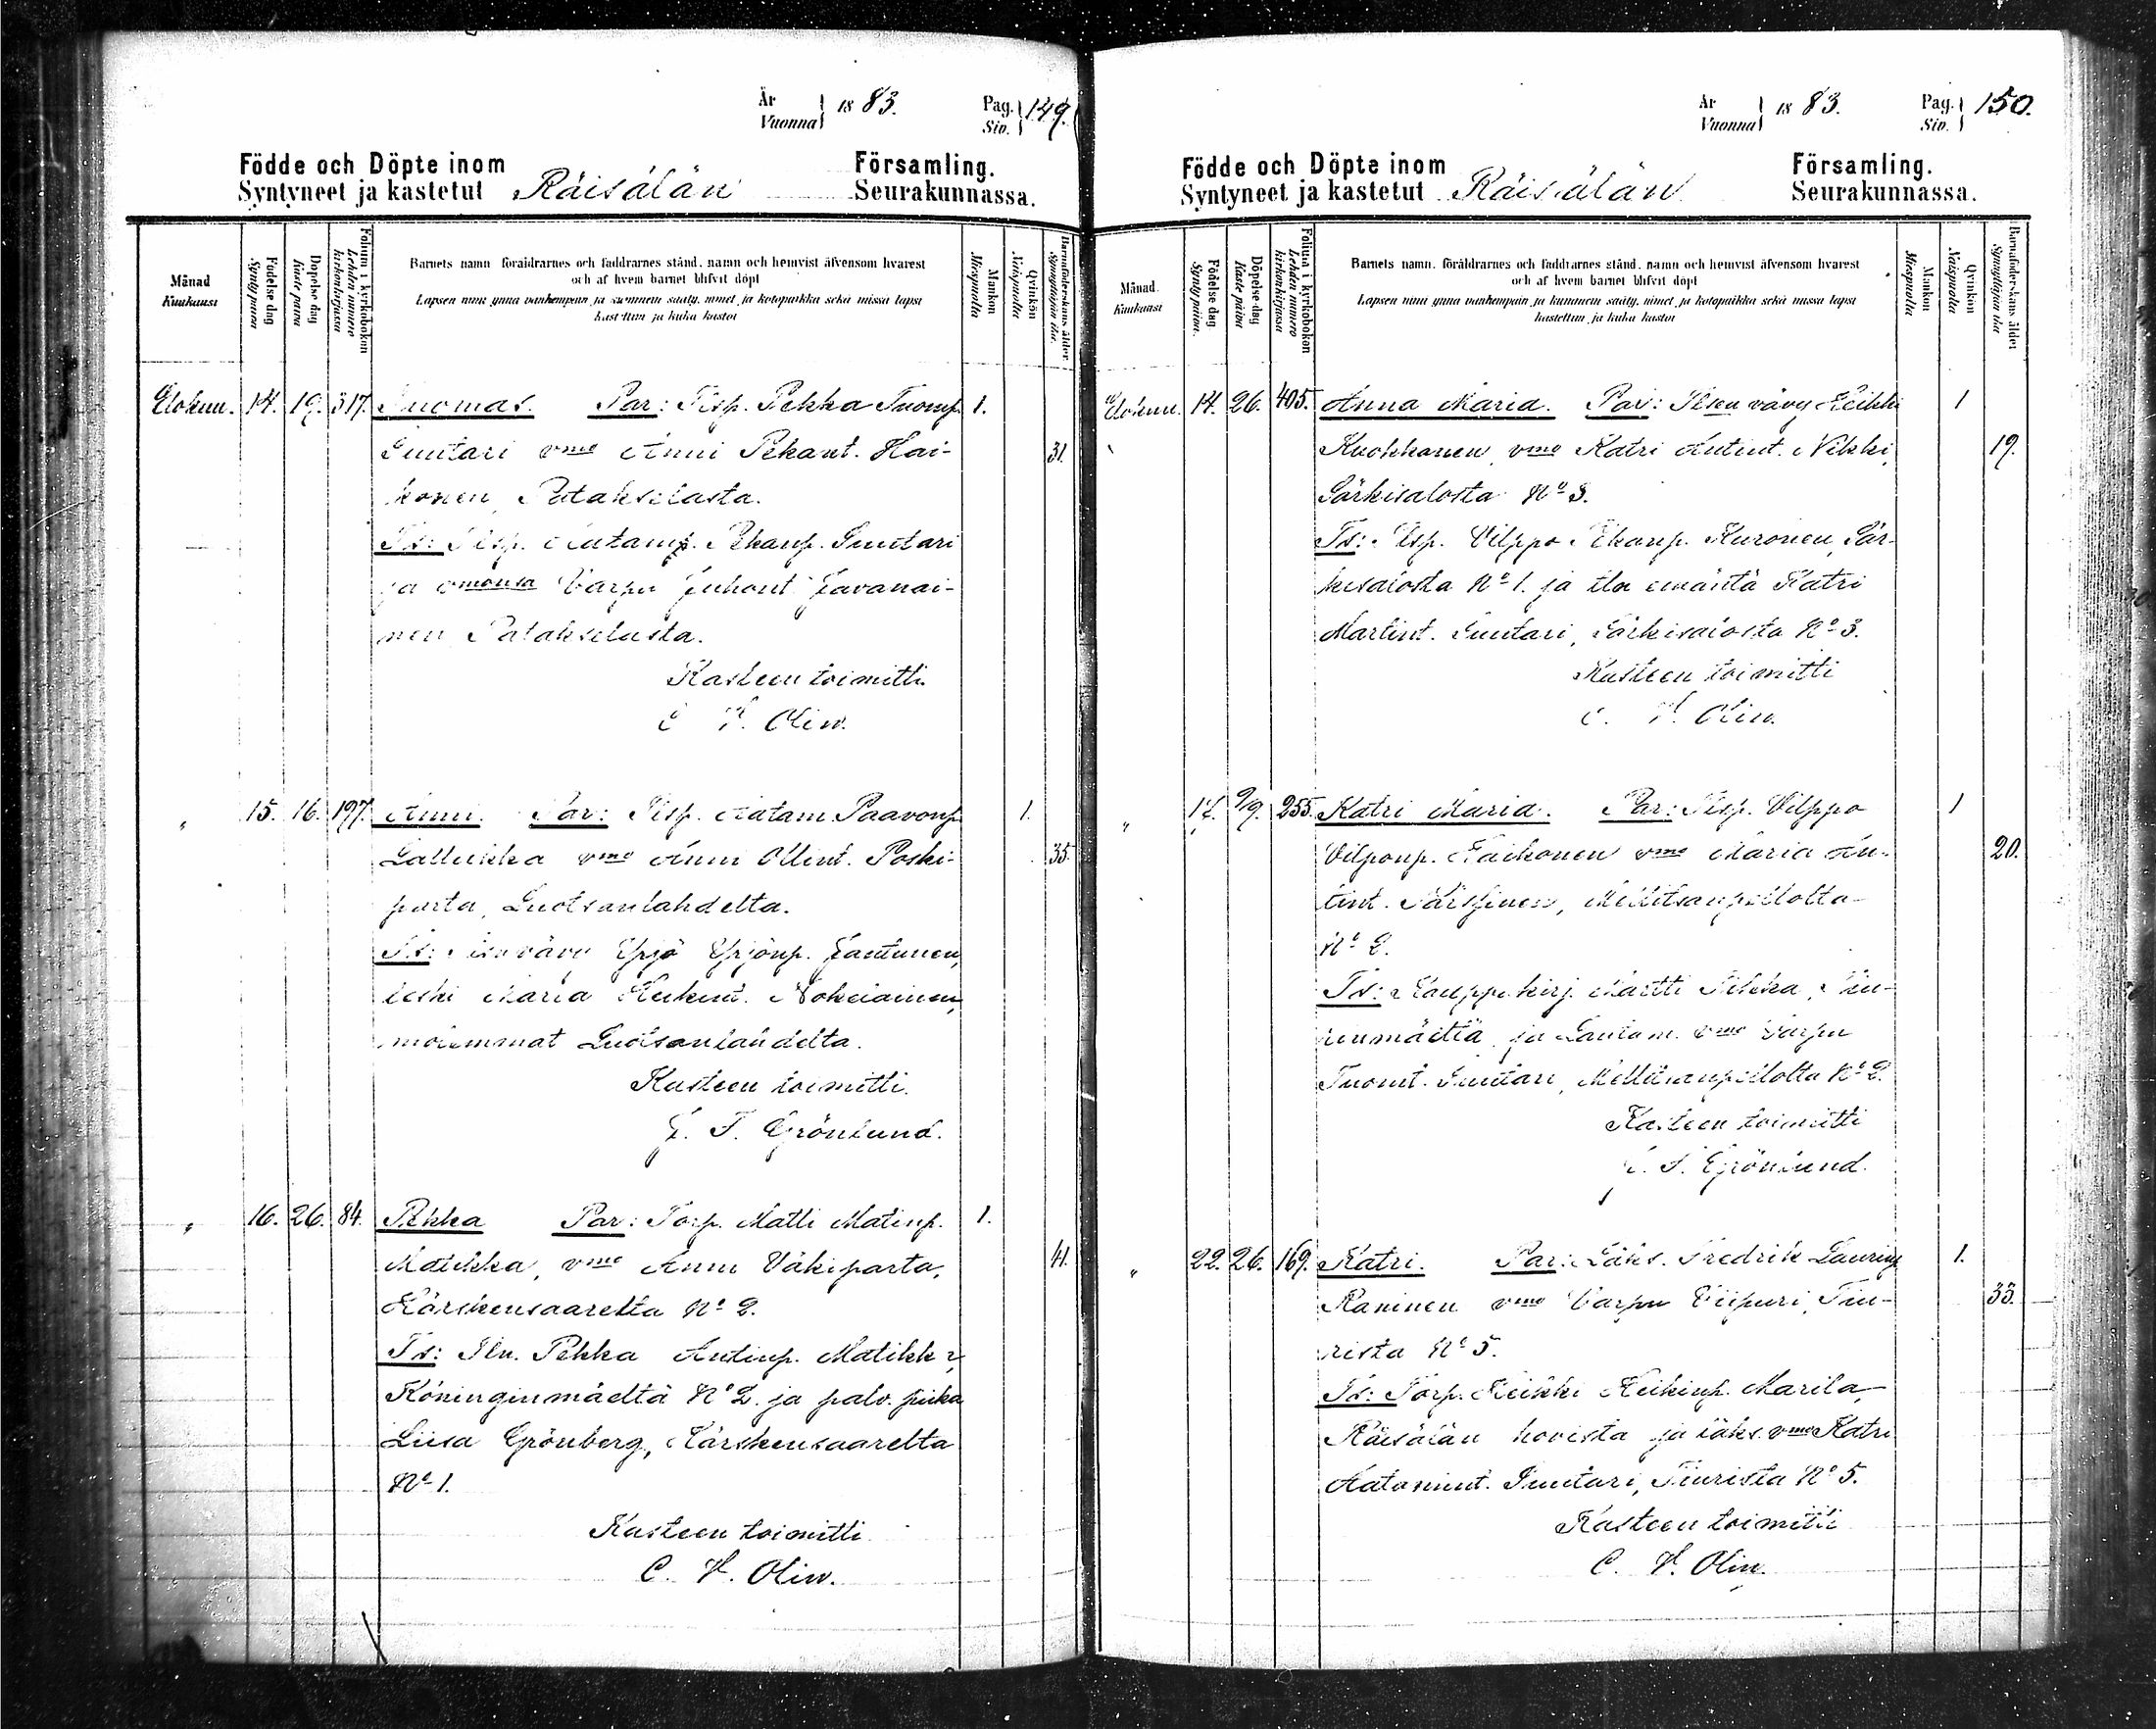 År
Vuonna 1883.
Pag.
Siv. 149.
Födde och Döpte inom Församling.
Syntyneet ja kastetut Räisälän Seurakunnassa.
Månad
Kuukausi
Födelse dag
Synty päivä
Döpelse dag
Kaste päivä
Folium i kyrkoboken
Lehden numero
kirkonkirjassa
Barnets namn föräldrarnes och faddrarnes stånd, namn och hemvist äfvensom hvarest
och af hvem barnet blifvit döpt
Lapsen nimi ynnä vanhempain ja kummein sääty, nimet ja kotopaikka sekä missä lapsi
kastettiin ja kuka kastoi
Mankön
Miespuolta
Qvinkön
Naispuolta
Barnaföderskans ålder
Synnyttäjän ikä.
Elokuu. 14. 19. 317. Tuomas. Par: Tisp. Pekka Tuomp. 1.
Suutari vmo Anni Pekant. Hai- 31.
konen, Pataksilasta.
Ts: Tisp. Aatamp. Pekanp. Suutari
ja vmonsa Varpu Juhont. Javanai-
nen Pataksilasta.
Kasteen toimitti
C. V. Olin.
" 15. 16. 197. Anni. Par: Tisp. Aatam Paavonp. 1.
Lallukka vmo Anni Ollint. Poski- 35.
parta, Luotsanlahdelta.
Ts: Yrjö Yrjönp. Jantunen,
leski Maria Heikint.
molemmat Luotsanlahdelta.
Kasteen toimitti.
J. F. Grönlund.
" 16. 26. 84. Pekka Par: Torp. Matti Matinp. 1.
Matikka, vmo Anni Väkiparta, 41.
Kärskensaarelta No 2.
Ts: Iln. Pekka Antinp. Matikka,
Köninginmäeltä No 2. ja palv. piika
Liisa Grönberg, Kärskensaarelta
No 1.
Kasteen toimitti
C. V. Olin.
År
Vuonna 1883.
Pag.
Siv. 150.
Födde och Döpte inom Församling.
Syntyneet ja kastetut Räisälän Seurakunnassa.
Månad.
Kuukausi
Födelse dag
Synty päivä.
Döpelse dag
Kaste päivä
Folium i kyrkoboken
Lehden numero
kirkonkirjassa
Barnets namn, föräldrarnes och faddrarnes stånd, namn och hemvist äfvensom hvarest
och af hvem barnet blifvit döpt
Lapsen nimi ynnä vanhempain ja kummein sääty, nimet ja kotopaikka sekä missä lapsi
kastettiin ja kuka kastoi
Mankön
Miespuolta
Qvinkön
Naispuolta
Barnaföderskans ålder
Synnyttäjän ikä
Elokuu. 14. 26. 405. Anna Maria. Par: Ilsen vävy Heikki 1
Kuokkanen vmo Katri Antint. Nikki, 19.
Särkisalosta No 3.
Ts: Tisp. Vilppo Pekanp. Kuronen, Sär-
kisalosta No 1. ja iln emäntä Katri
Martint. Suutari, Särkisalosta No 3.
Kasteen toimitti
C. V. Olin.
" 17. 9/9. 255. Katri Maria. Par: Tisp. Vilppo 1
Vilponp. Naikonen vmo Maria An- 20.
tint. Särkinen, Mellitsanpellolta
No 2.
Ts: Kauppakirj. Martti Pekka,
ja Lautam. vmo Varpu
Tuomt. Suutari, Mellitsanpellolta No 2.
Kasteen toimitti
J. F. Grönlund.
" 22. 26. 169. Katri. Par: Läks. Fredrik Laurinp. 1.
Raninen vmo Varpu Viipuri, Tiu- 33.
rista No 5.
Ts: Torp. Heikki Heikinp. Marila,
Räisälän hovista ja läks. vmo Katri
Aatamint. Suutari, Tiurista No 5.
Kasteen toimitti
C. V. Olin.